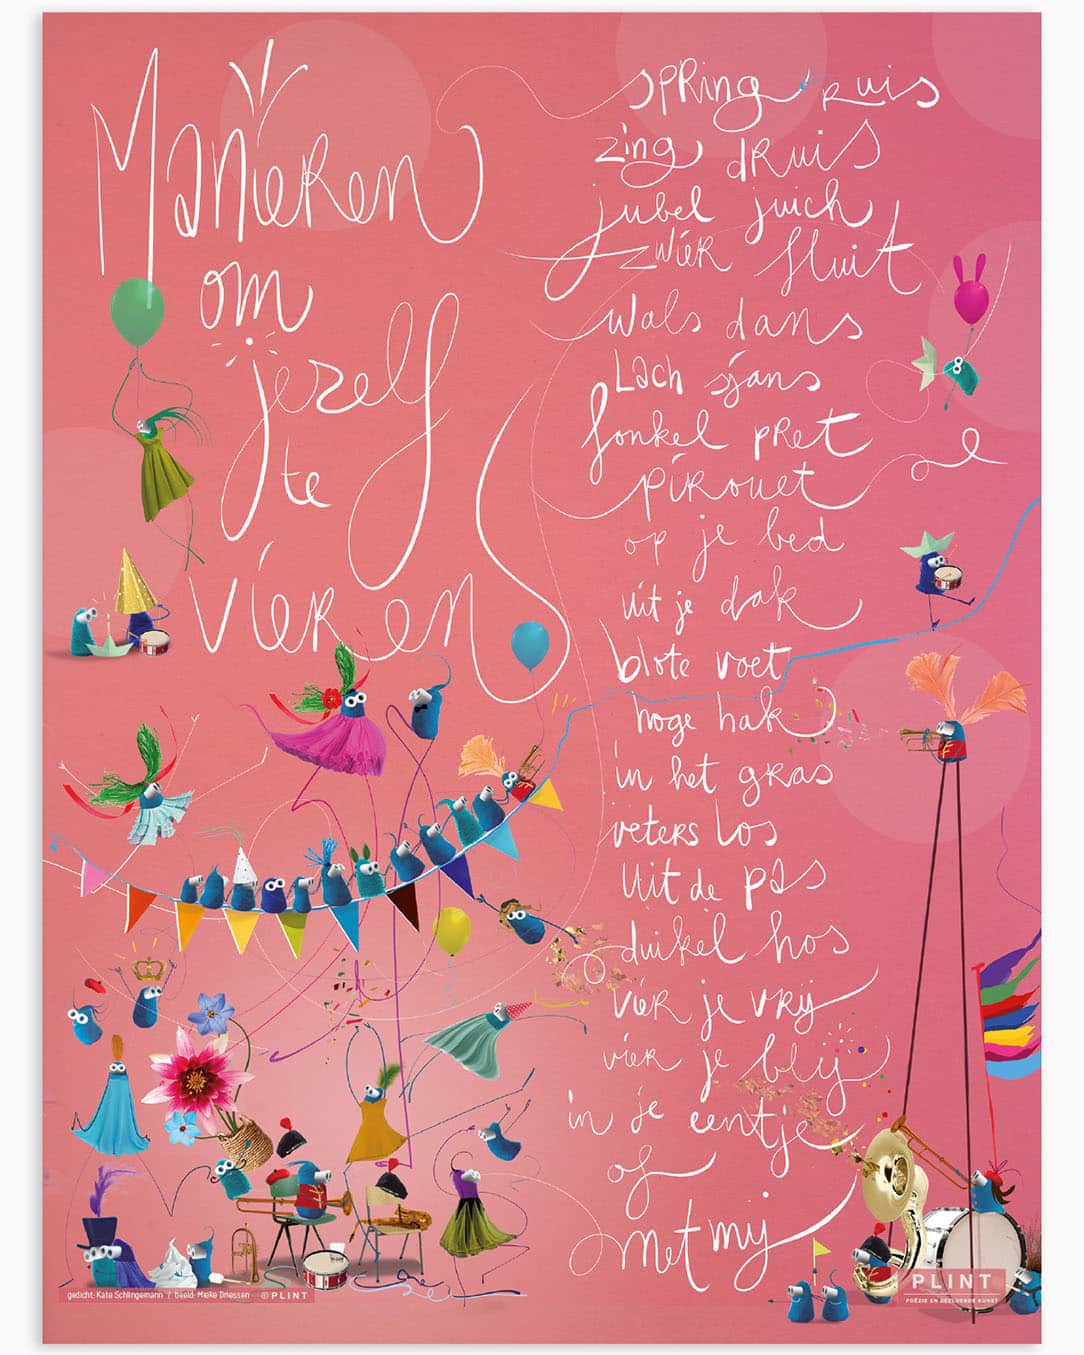 Manieren
om
jezelf
te
vieren
spring ruis
zing druis
jubel juich
zwier fluit
wals dans
Lach sjans
fonkel pret
pirouet
op je bed
uit je dak
blote voet
hoge hak
in het gras
veters los
uit de pas
duikel hos
vier je vrij
vier je blij
in je eentje
of
met mij
gedicht: Kate Schlingemann / beeld: Mieke Driessen © PLINT
PLINT
POËZIE EN BEELDENDE KUNST